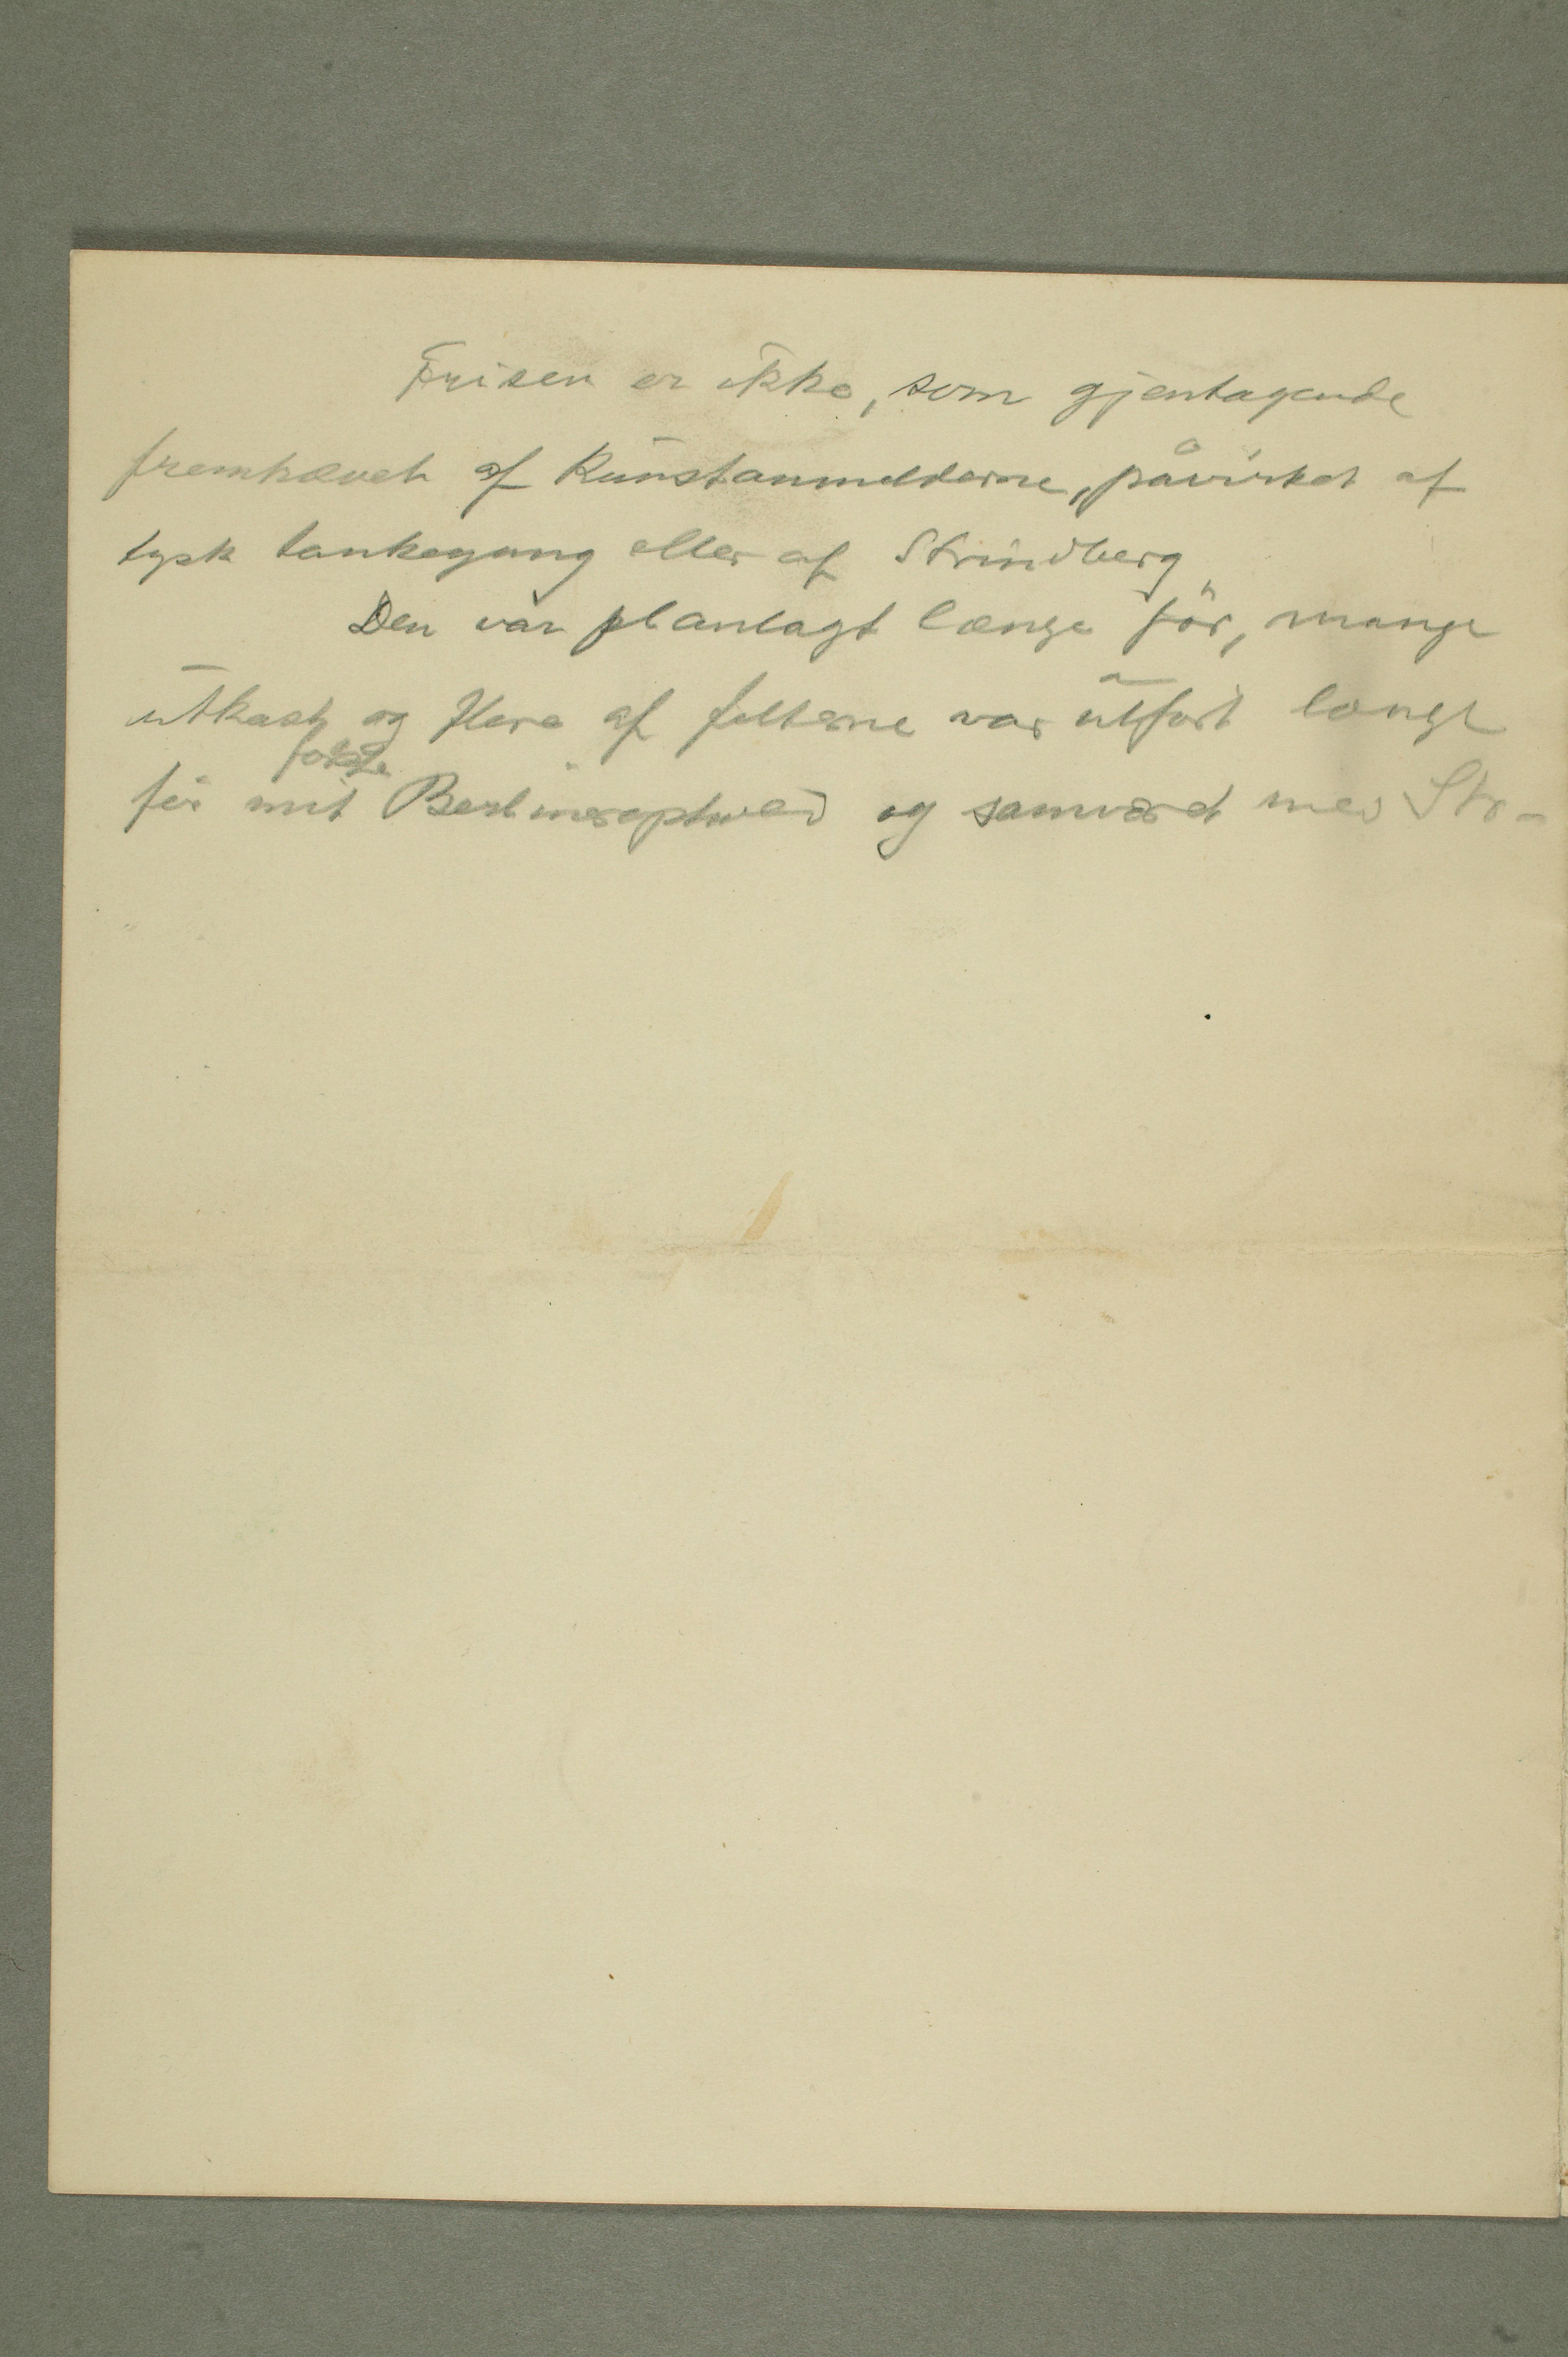 Frisen er ikke, som gjentagende
fremhævet af Kunstanmelderne, påvirket af
tysk tankegang eller af Strindberg
Den var planlagt længe för, mange
utkast og flere af felterne var utført længe
første
før mit Berlineropphold og samværet med Str-